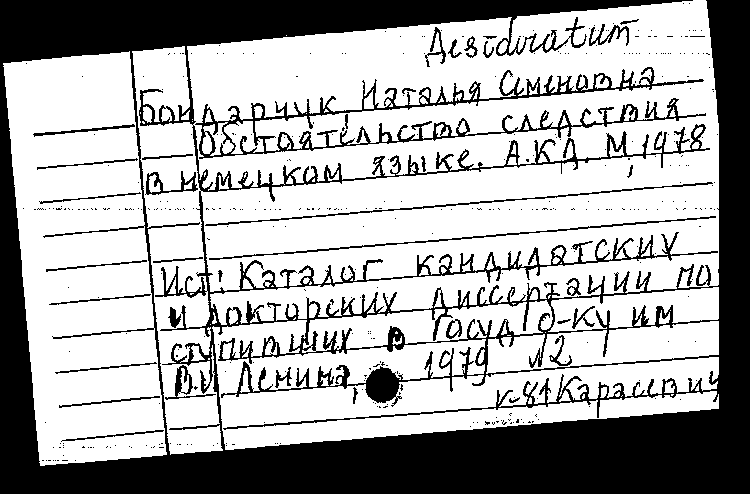 Desideratum
Бондарчук, Наталья Семеновна
Обстоятельство следствия
в немецком языке. А.К.Д. М, 1978
Ист: Каталог кандидатских
и докторских диссертации по
ступивших в Госуд б-ку им
В.И Ленина, 1979 №2
к-81 Карасевич